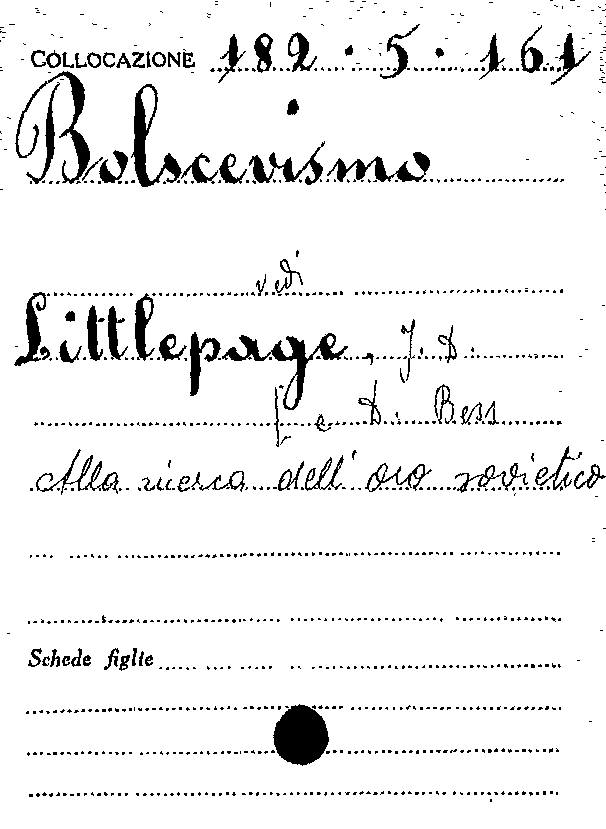 COLLOCAZIONE 182.5.161
Bolscevismo
vedi
Littlepage, J. D.
[ e D. Bess
Alla ricerca dell'oro sovietico
Schede figlie